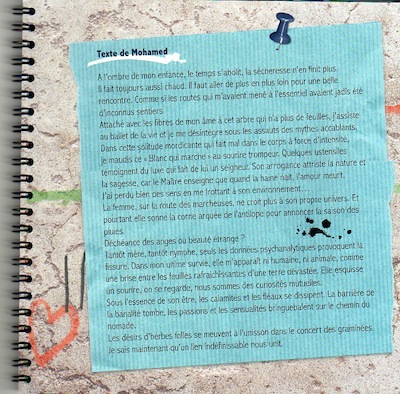 Texte de Mohamed
A l'ombre de mon enfance, le temps s'abolit, la sècheresse n'en finit plus.
Il fait toujours aussi chaud. Il faut aller de plus en plus loin pour une belle
rencontre. Comme si les routes qui m'avaient mené à l'essentiel avaient jadis été
d'inconnus sentiers.
Attaché avec les fibres de mon âme à cet arbre qui n'a plus de feuilles, j'assiste
au ballet de la vie et je me désintègre sous les assauts des mythes accablants.
Dans cette solitude mordicante qui fait mal dans le corps à force d'intensité,
je maudis ce « Blanc qui marche » au sourire trompeur. Quelques ustensiles
témoignent du luxe qui fait de lui un seigneur. Son arrogance attriste la nature et
la sagesse, car le Maître enseigne que quand la haine naît, l'amour meurt.
J'ai perdu bien des sens en me frottant à son environnement...
La femme, sur la route des marcheuses, ne croit plus à son propre univers. Et
pourtant elle sonne la corne arquée de l'antilope pour annoncer la saison des
pluies.
Déchéance des anges ou beauté étrange ?
Tantôt mère, tantôt nymphe, seuls les données psychanalytiques provoquent la
fissure. Dans mon ultime survie, elle m'apparaît ni humaine, ni animale, comme
une brise entre les feuilles rafraîchissantes d'une terre dévastée. Elle esquisse
un sourire, on se regarde, nous sommes des curiosités mutuelles.
Sous l'essence de son être, les calamités et les fléaux se dissipent. La barrière de
la banalité tombe, les passions et les sensualités bringuebalent sur le chemin du
nomade.
Les désirs d'herbes folles se meuvent à l'unisson dans le concert des graminées.
Je sais maintenant qu'un lien indéfinissable nous unit.